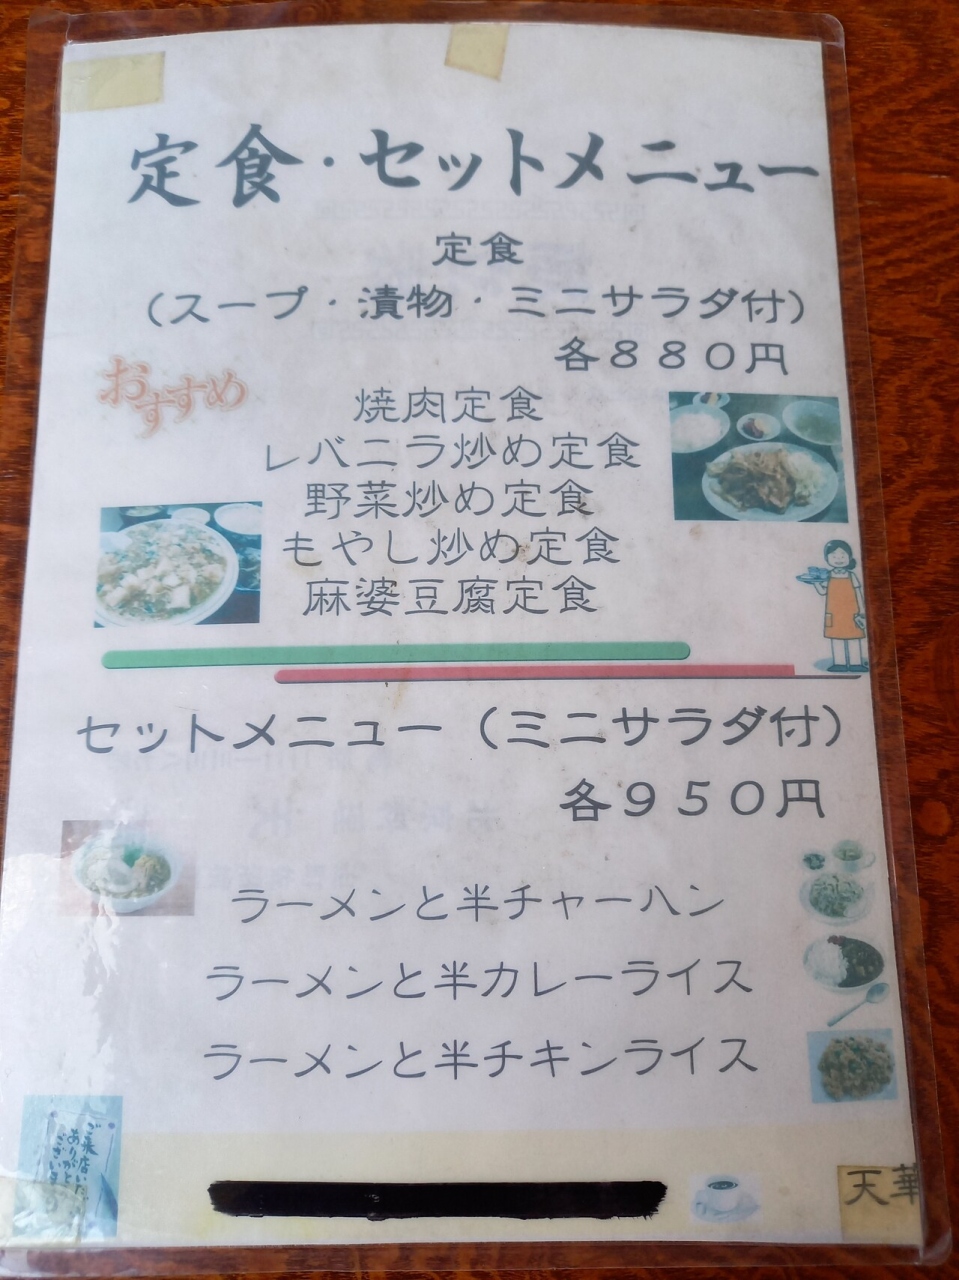 定食・セットメニュー
定食
（スープ・漬物・ミニサラダ付）
各８８０円
おすすめ
焼肉定食
レバニラ炒め定食
野菜炒め定食
もやし炒め定食
麻婆豆腐定食
セットメニュー（ミニサラダ付）
各９５０円
ラーメンと半チャーハン
ラーメンと半カレーライス
ラーメンと半チキンライス
ご来店
ありがと
ござい
天華